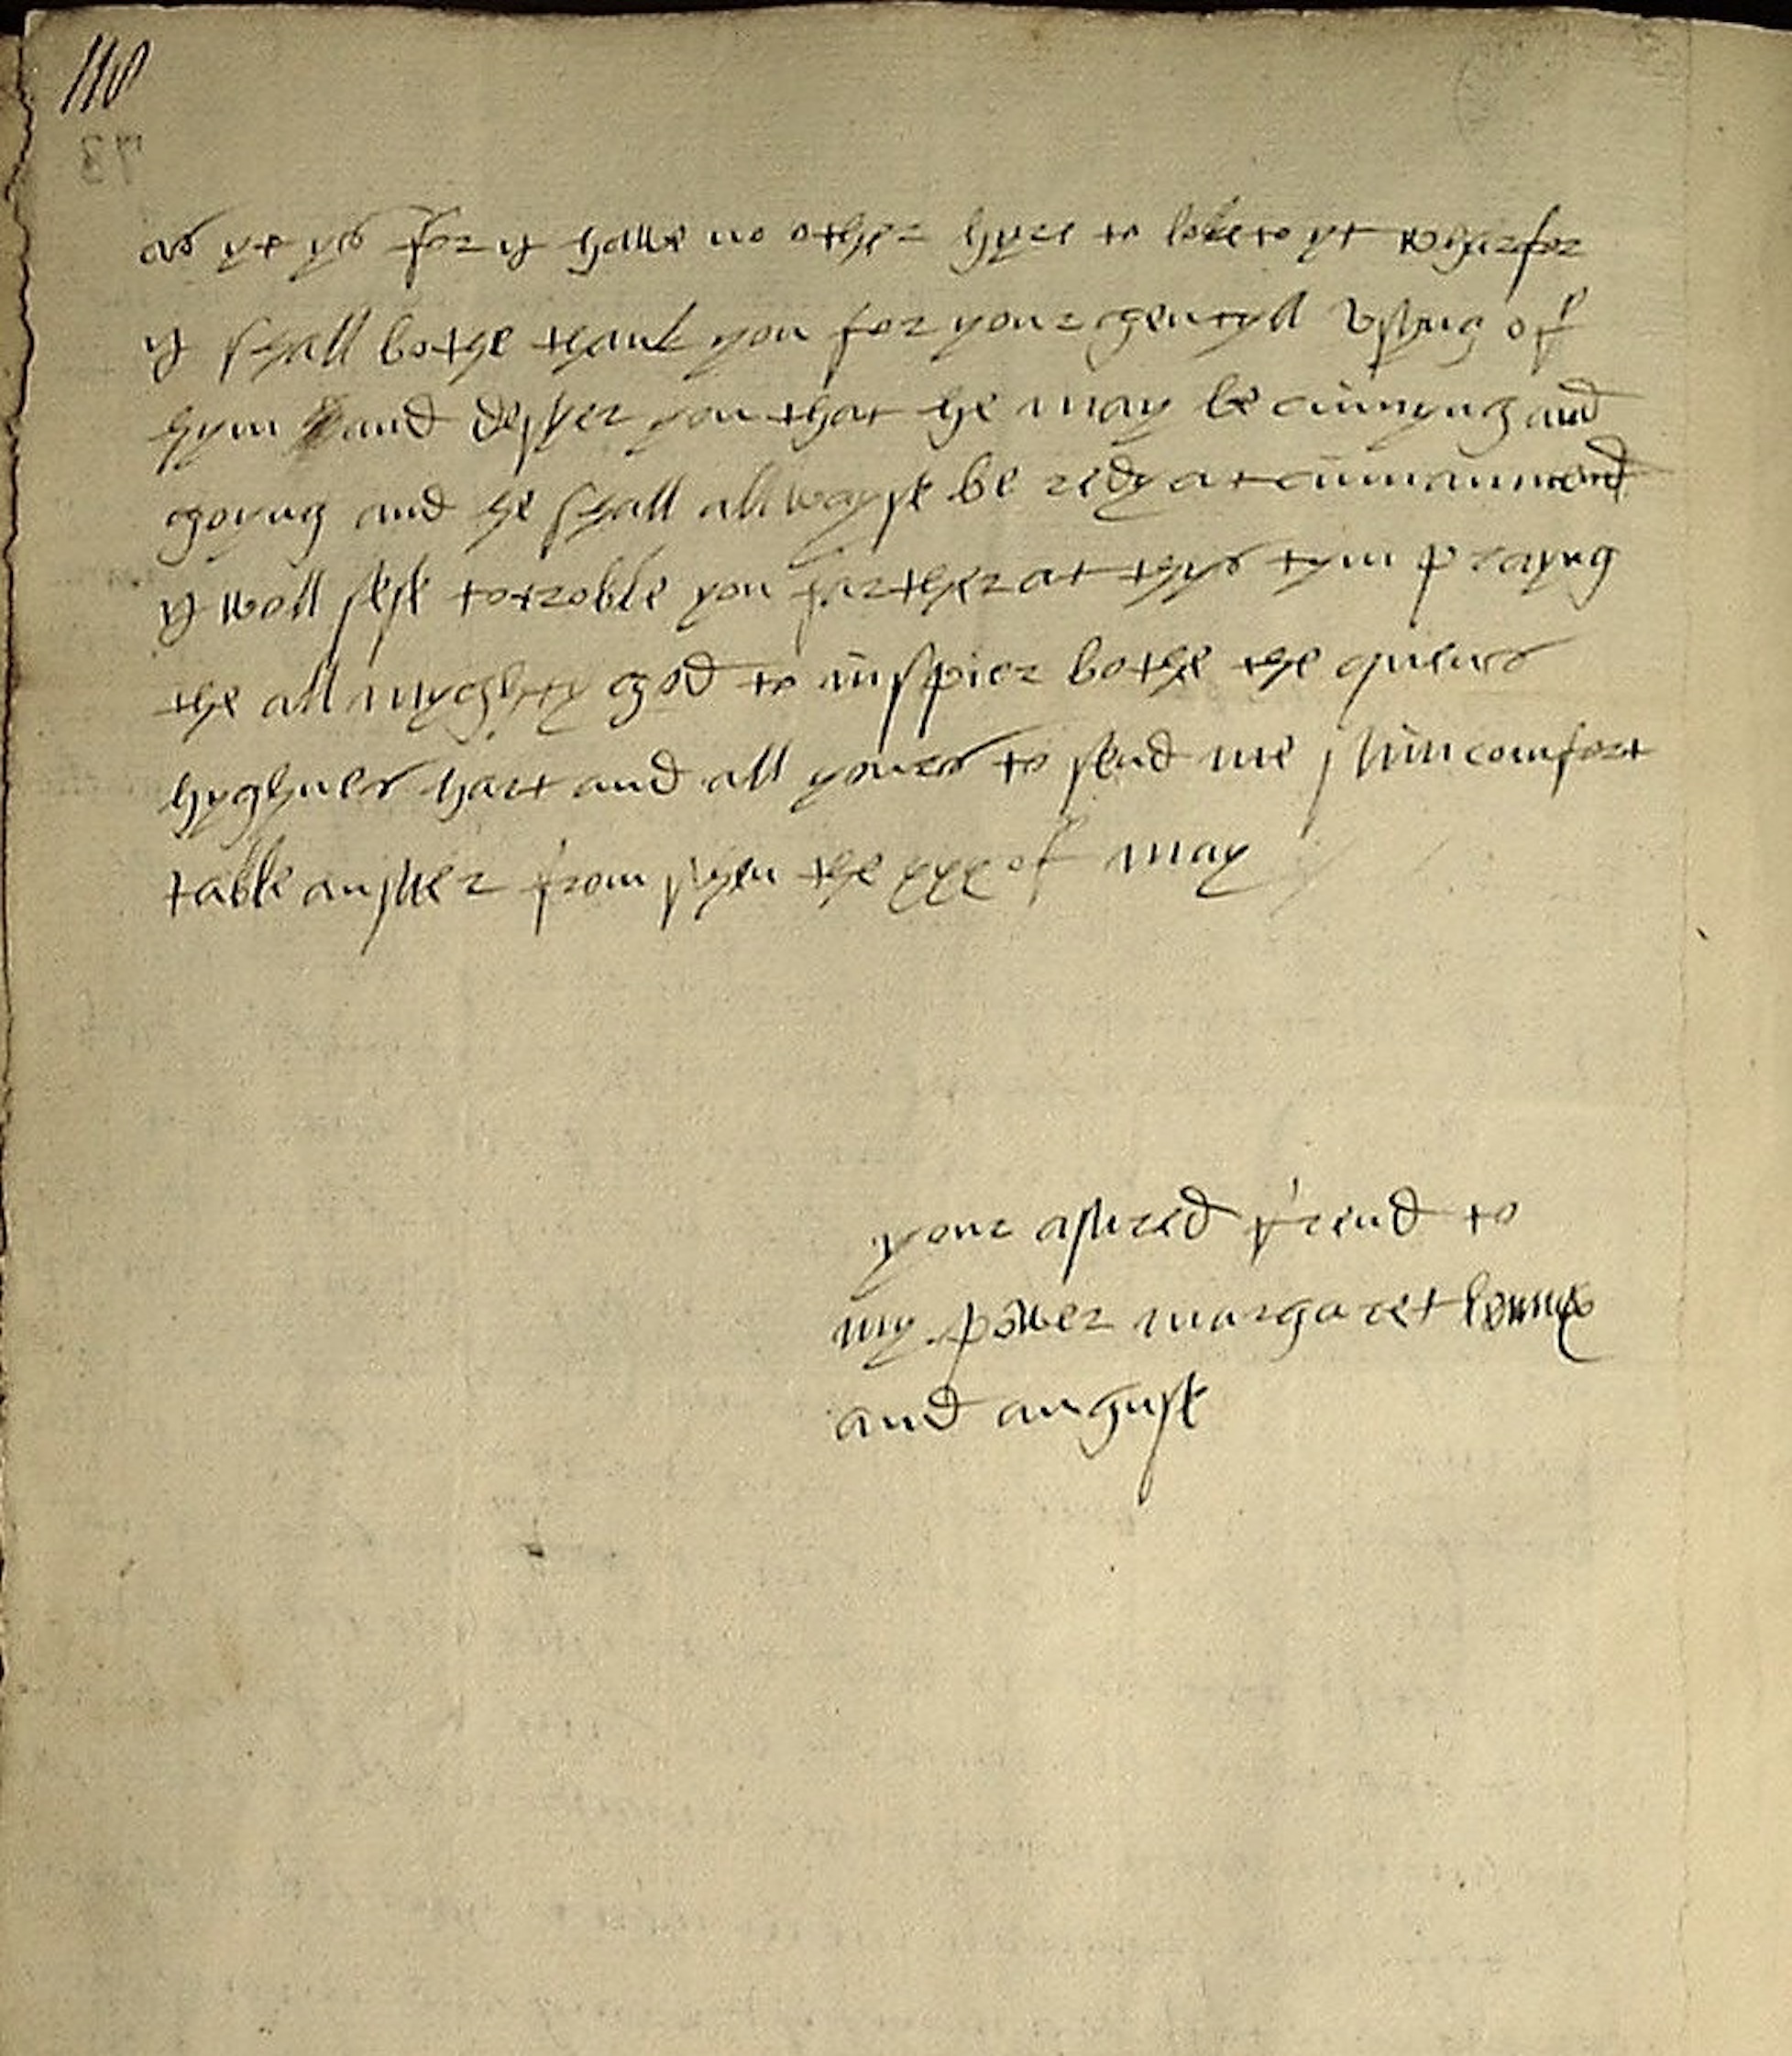 110
73
as yt ys for y haue no other hyre to loke to yt wherfor
y shall bothe thank you for your gentyll vsyng of
hym and desyer you that he may be cumyng and
goyng and he shall allwayse be redy at cummanment
y woll sese to troble you farther at thys tym prayng
the all myghty god to inspier bothe the quens
hyghnes hart and all yours to send me sum comfort
table answer from shen the xxx of may
your asured frend to
my power margaret lennox
and anguse